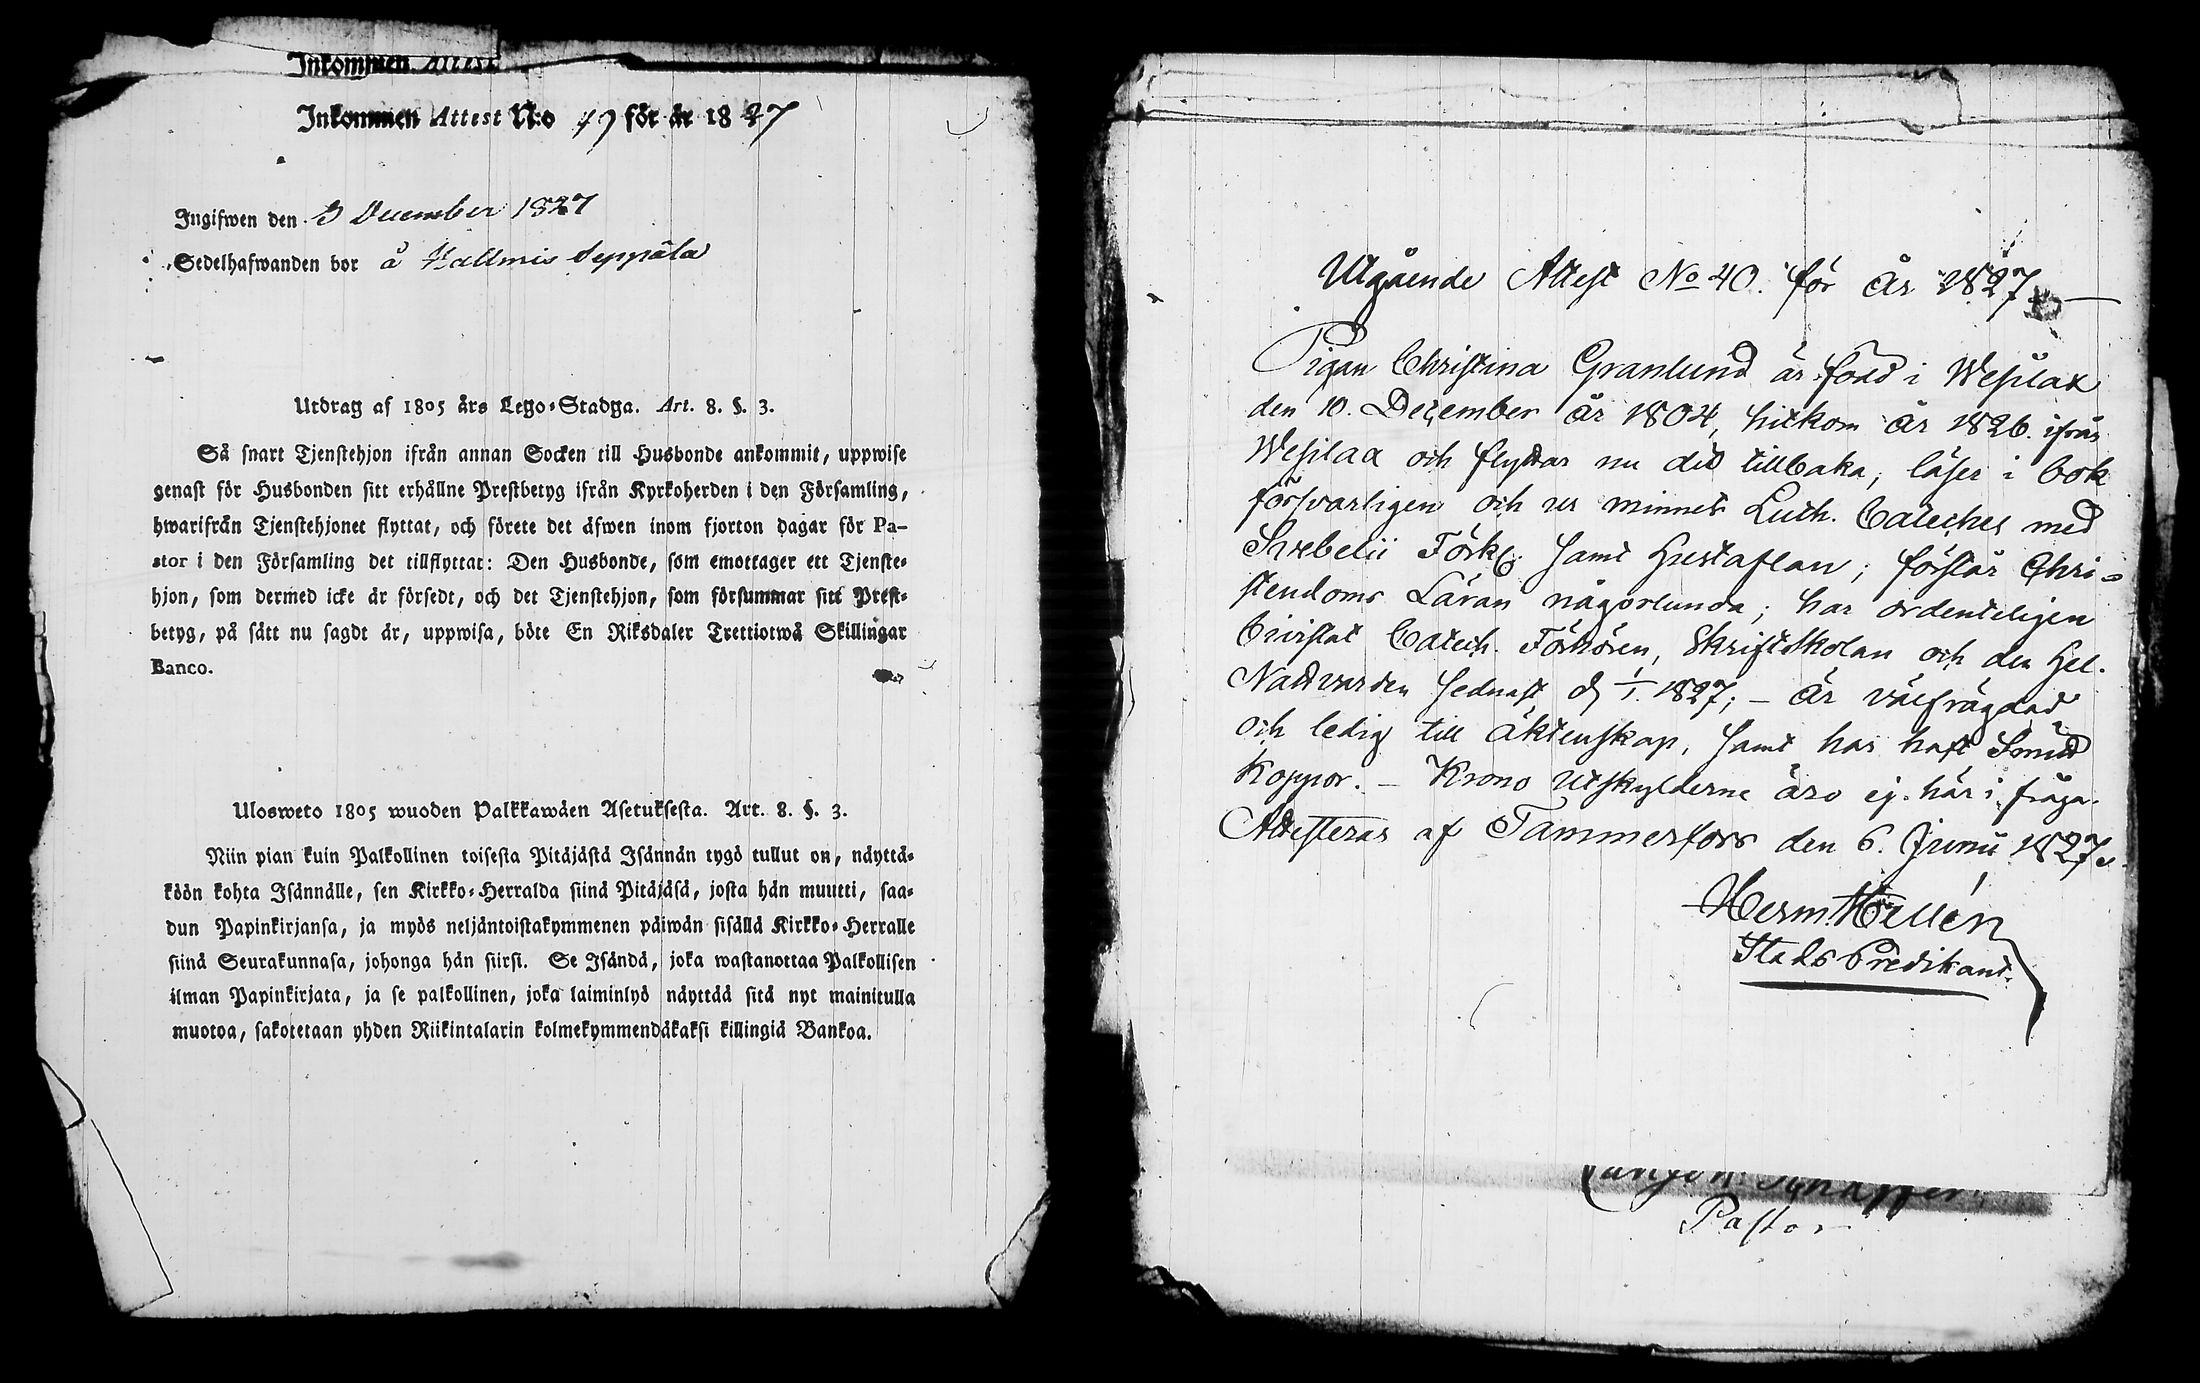 Inkommen Attest
Inkommen Attest N:o 49 för år 1827
Ingifwen den 3 December 1827
Sedelhafwanden bor å Hallmis Seppälä
Utdrag af 1805 års Lego-Stadga. Art. 8. §. 3.
Så snart Tjenstehjon ifrån annan Socken till Husbonde ankommit, uppwise
genast för Husbonden sitt erhållne Prestbetyg ifrån Kyrkoherden i den Församling,
hwarifrån Tjenstehjonet flyttat, och förete det äfwen inom fjorton dagar för Pa-
stor i den Församling det tillflyttat: Den Husbonde, som emottager ett Tjenste-
hjon, som dermed icke är försedt, och det Tjenstehjon, som försummar sitt Prest-
betyg, på sätt nu sagdt är, uppwisa, böte En Riksdaler Trettiotwå Skillingar
Banco.
Ulosweto 1805 wuoden Palkkawäen Asetuksesta. Art. 8. §. 3.
Niin pian kuin Palkollinen toisesta Pitäjästä Isännän tygö tullut on, näyttä-
köön kohta Isännälle, sen Kirkko-Herralda siinä Pitäjäsä, josta hän muutti, saa-
dun Papinkirjansa, ja myös neljäntoistakymmenen päiwän sisällä Kirkko-Herralle
siinä Seurakunnasa, johonga hän siirsi. Se Isändä, joka wastanottaa Palkollisen
ilman Papinkirjata, ja se palkollinen, joka laiminlyö näyttää sitä nyt mainitulla
muotoa, sakotetaan yhden Riikintalarin kolmekymmendäkaksi killingiä Bankoa.
Utgående Attest No 40. för år 1827.
Pigan Christina Granlund är född i Wesilax
den 10. December år 1804, hitkom år 1826. ifrån
Wesilax och flyttar nu dit tillbaka; läser i bok
försvarligen och ur minnet Luth. Cateches med
Svebelii Förkl. samt Hustaflan; förstår Chri-
stendoms Läran någorlunda; har ordenteligen
bivistat Catech. Förhören, Skriftskolan och den Hel.
Nattvarden sednast d 1/1. 1827; – är välfrägdad
och ledig till äktenskap, samt har haft Smitt
Koppor. – Krono Utskylderne äro ej här i fråga.
Attesteras af Tammerfors den 6. Junii 1827.
Herm. Hellén
Stads Predikant.
Pastor